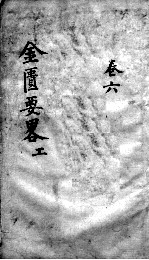 卷六
金匱要畧 工